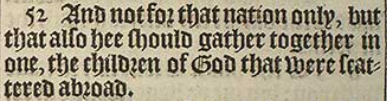 52 And not for that nation only, but
that also hee should gather together in
one, the children of God that were scat-
tered abroad.